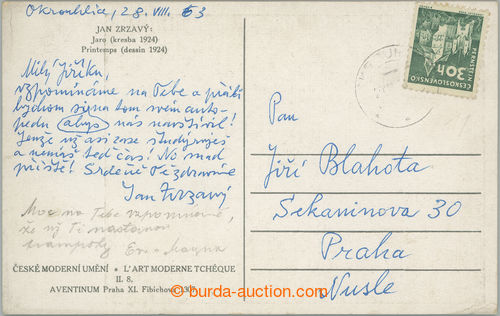 Okrouhlice, 28. VIII. 63
JAN ZRZAVÝ:
Jaro (kresba 1924)
Printemps (dessin 1924)
Milý Jiříku,
vzpomínáme na Tebe a přáli
bychom si na tom svém auto-
pedu abys nás navštívil!
Jenže už asi zase studuješ
a nemáš teď čas! No snad
příště! Srdečně Tě zdravíme
Jan Zrzavý
Moc na Tebe vzpomínáme,
že už Ti nastanou
trampoty
ČESKÉ MODERNÍ UMĚNÍ • L'ART MODERNE TCHÈQUE
II. 8.
AVENTINUM Praha XI. Fibichova 1307
Pan
Jiří Blahota
Sekaninova 30
Praha
Nusle
ČESKOSLOVENSKO
30h
PERNŠTEJN
burda-auction.com